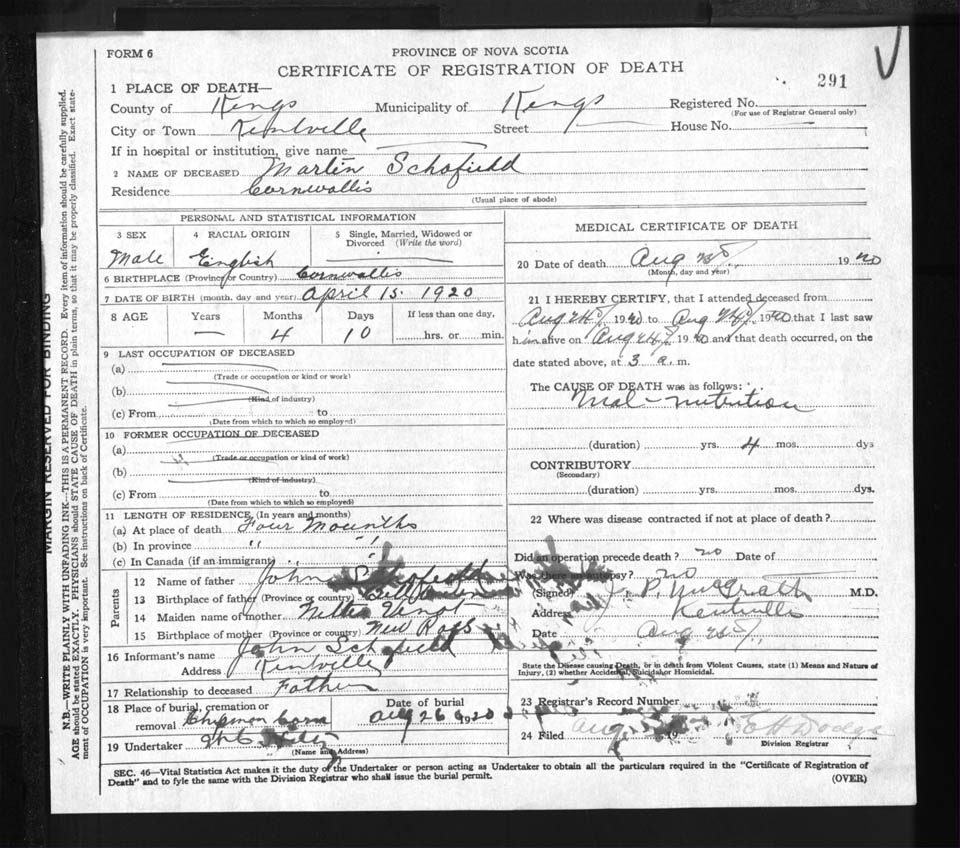 FORM 6
PROVINCE OF NOVA SCOTIA
CERTIFICATE OF REGISTRATION OF DEATH
291
1 PLACE OF DEATH—
County of Kings Municipality of Kings Registered No.
(For use of Registrar General only)
City or Town Kentville Street House No. —
If in hospital or institution, give name
2 NAME OF DECEASED Martin Schofield
Residence Cornwallis
(Usual place of abode)
PERSONAL AND STATISTICAL INFORMATION
3 SEX 4 RACIAL ORIGIN 5 Single, Married, Widowed or Divorced (Write the word)
Male English
6 BIRTHPLACE (Province or Country) Cornwallis
7 DATE OF BIRTH (month, day and year) April 15. 1920
8 AGE Years Months Days If less than one day,
— 4 10 hrs. or min.
9 LAST OCCUPATION OF DECEASED
(a)
(Trade or occupation or kind or work)
(b)
(Kind of industry)
(c) From to
(Date from which to which so employed)
10 FORMER OCCUPATION OF DECEASED
(a)
(Trade or occupation or kind of work)
(b)
(Kind of industry)
(c) From to
(Date from which to which so employed)
11 LENGTH OF RESIDENCE (In years and months)
(a) At place of death Four Mounths
(b) In province " "
(c) In Canada (if an immigrant)
Parents
12 Name of father John Schofield
13 Birthplace of father (Province or country)
14 Maiden name of mother Nettie Venot
15 Birthplace of mother (Province or country) New Ross
16 Informant's name John Schofield
Address Kentville
17 Relationship to deceased Father
18 Place of burial, cremation or removal Date of burial
Chipman Corn Aug 26 1920
19 Undertaker
(Name and Address)
MEDICAL CERTIFICATE OF DEATH
20 Date of death Aug 25 1920
(Month, day and year)
21 I HEREBY CERTIFY, that I attended deceased from
Aug 24 1920 to Aug 24 1920 that I last saw
him alive on Aug 24 1920 and that death occurred, on the
date stated above, at 3 a. m.
The CAUSE OF DEATH was as follows:
Mal-nutrition
(duration) yrs. 4 mos. dys
CONTRIBUTORY
(Secondary)
(duration) yrs. mos. dys.
22 Where was disease contracted if not at place of death?
Did an operation precede death? no Date of
Was there an autopsy? no
(Signed) J. P. McGrath M.D.
Address Kentville
Date Aug 25
State the Disease causing Death, or in death from Violent Causes, state (1) Means and Nature of
Injury, (2) whether Accidental, Suicidal or Homicidal.
23 Registrar's Record Number
24 Filed Aug 19 E H Dodge
Division Registrar
SEC. 46—Vital Statistics Act makes it the duty of the Undertaker or person acting as Undertaker to obtain all the particulars required in the "Certificate of Registration of
Death" and to fyle the same with the Division Registrar who shall issue the burial permit.
(OVER)
MARGIN RESERVED FOR BINDING
N.B.—WRITE PLAINLY WITH UNFADING INK—THIS IS A PERMANENT RECORD. Every item of information should be carefully supplied.
AGE should be stated EXACTLY. PHYSICIANS should STATE CAUSE OF DEATH in plain terms, so that it may be properly classified. Exact state-
ment of OCCUPATION is very important. See instructions on back of Certificate.